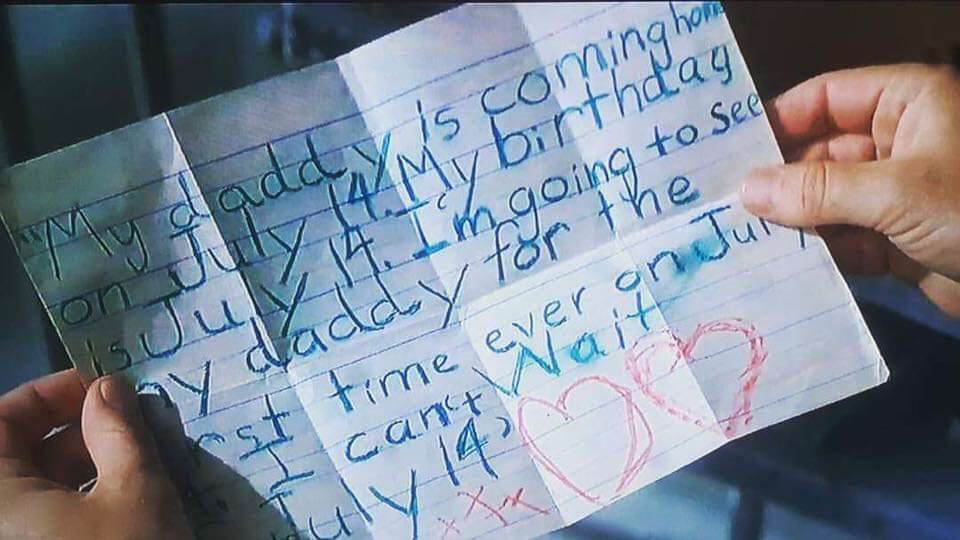 "My daddy is coming home
on July 14. My birthday
is July 14. I'm going to see
my daddy for the
time ever on July
I can't Wait
July 14
xXx